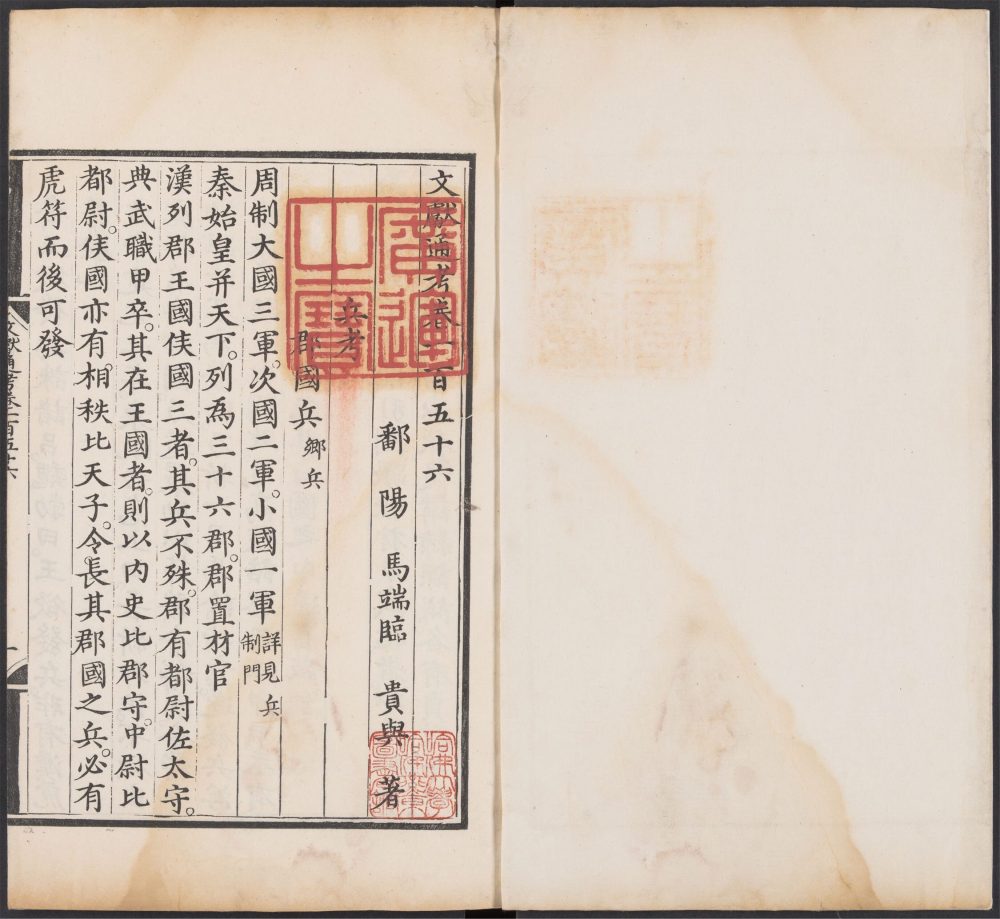 文獻通考卷一百五十六
鄱陽馬端臨貴與著
兵考
郡國兵 鄉兵
周制大國三軍。次國二軍。小國一軍 詳見兵制門
秦始皇并天下。列爲三十六郡。郡置材官
漢列郡王國侯國三者。其兵不殊。郡有都尉佐太守。
典武職甲卒。其在王國者。則以内史比郡守。中尉比
都尉。侯國亦有相。秩比天子。令長其郡國之兵。必有
虎符而後可發
文獻通考卷一百五十六
廣運之寶